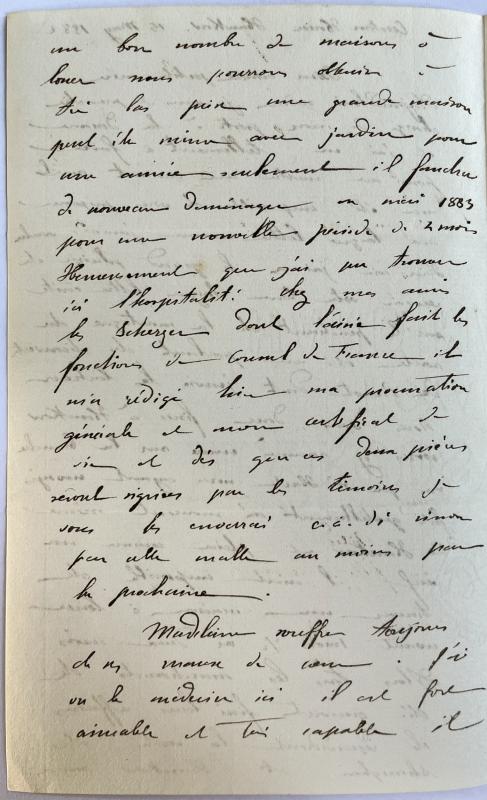 un bon nombre de maisons à
louer nous pourrons obtenir à
très bas prix une grande maison
peut être même avec jardin pour
une année seulement il faudra
de nouveau déménager en mai 1883
pour une nouvelle période de 2 mois
Heureusement que j'ai pu trouver
ici l'hospitalité chez mes amis
les Scherzer dont l'aîné fait les
fonctions de Consul de France il
m'a rédigé hier ma procuration
générale et mon certificat de
vie et dès que ces deux pièces
seront signées par les témoins je
vous les enverrai c. à. d. sinon
par cette malle au moins par
la prochaine.
Madeleine souffre toujours
de ses maux de coeur. J'ai
vu le médecin ici il est fort
aimable et très capable il